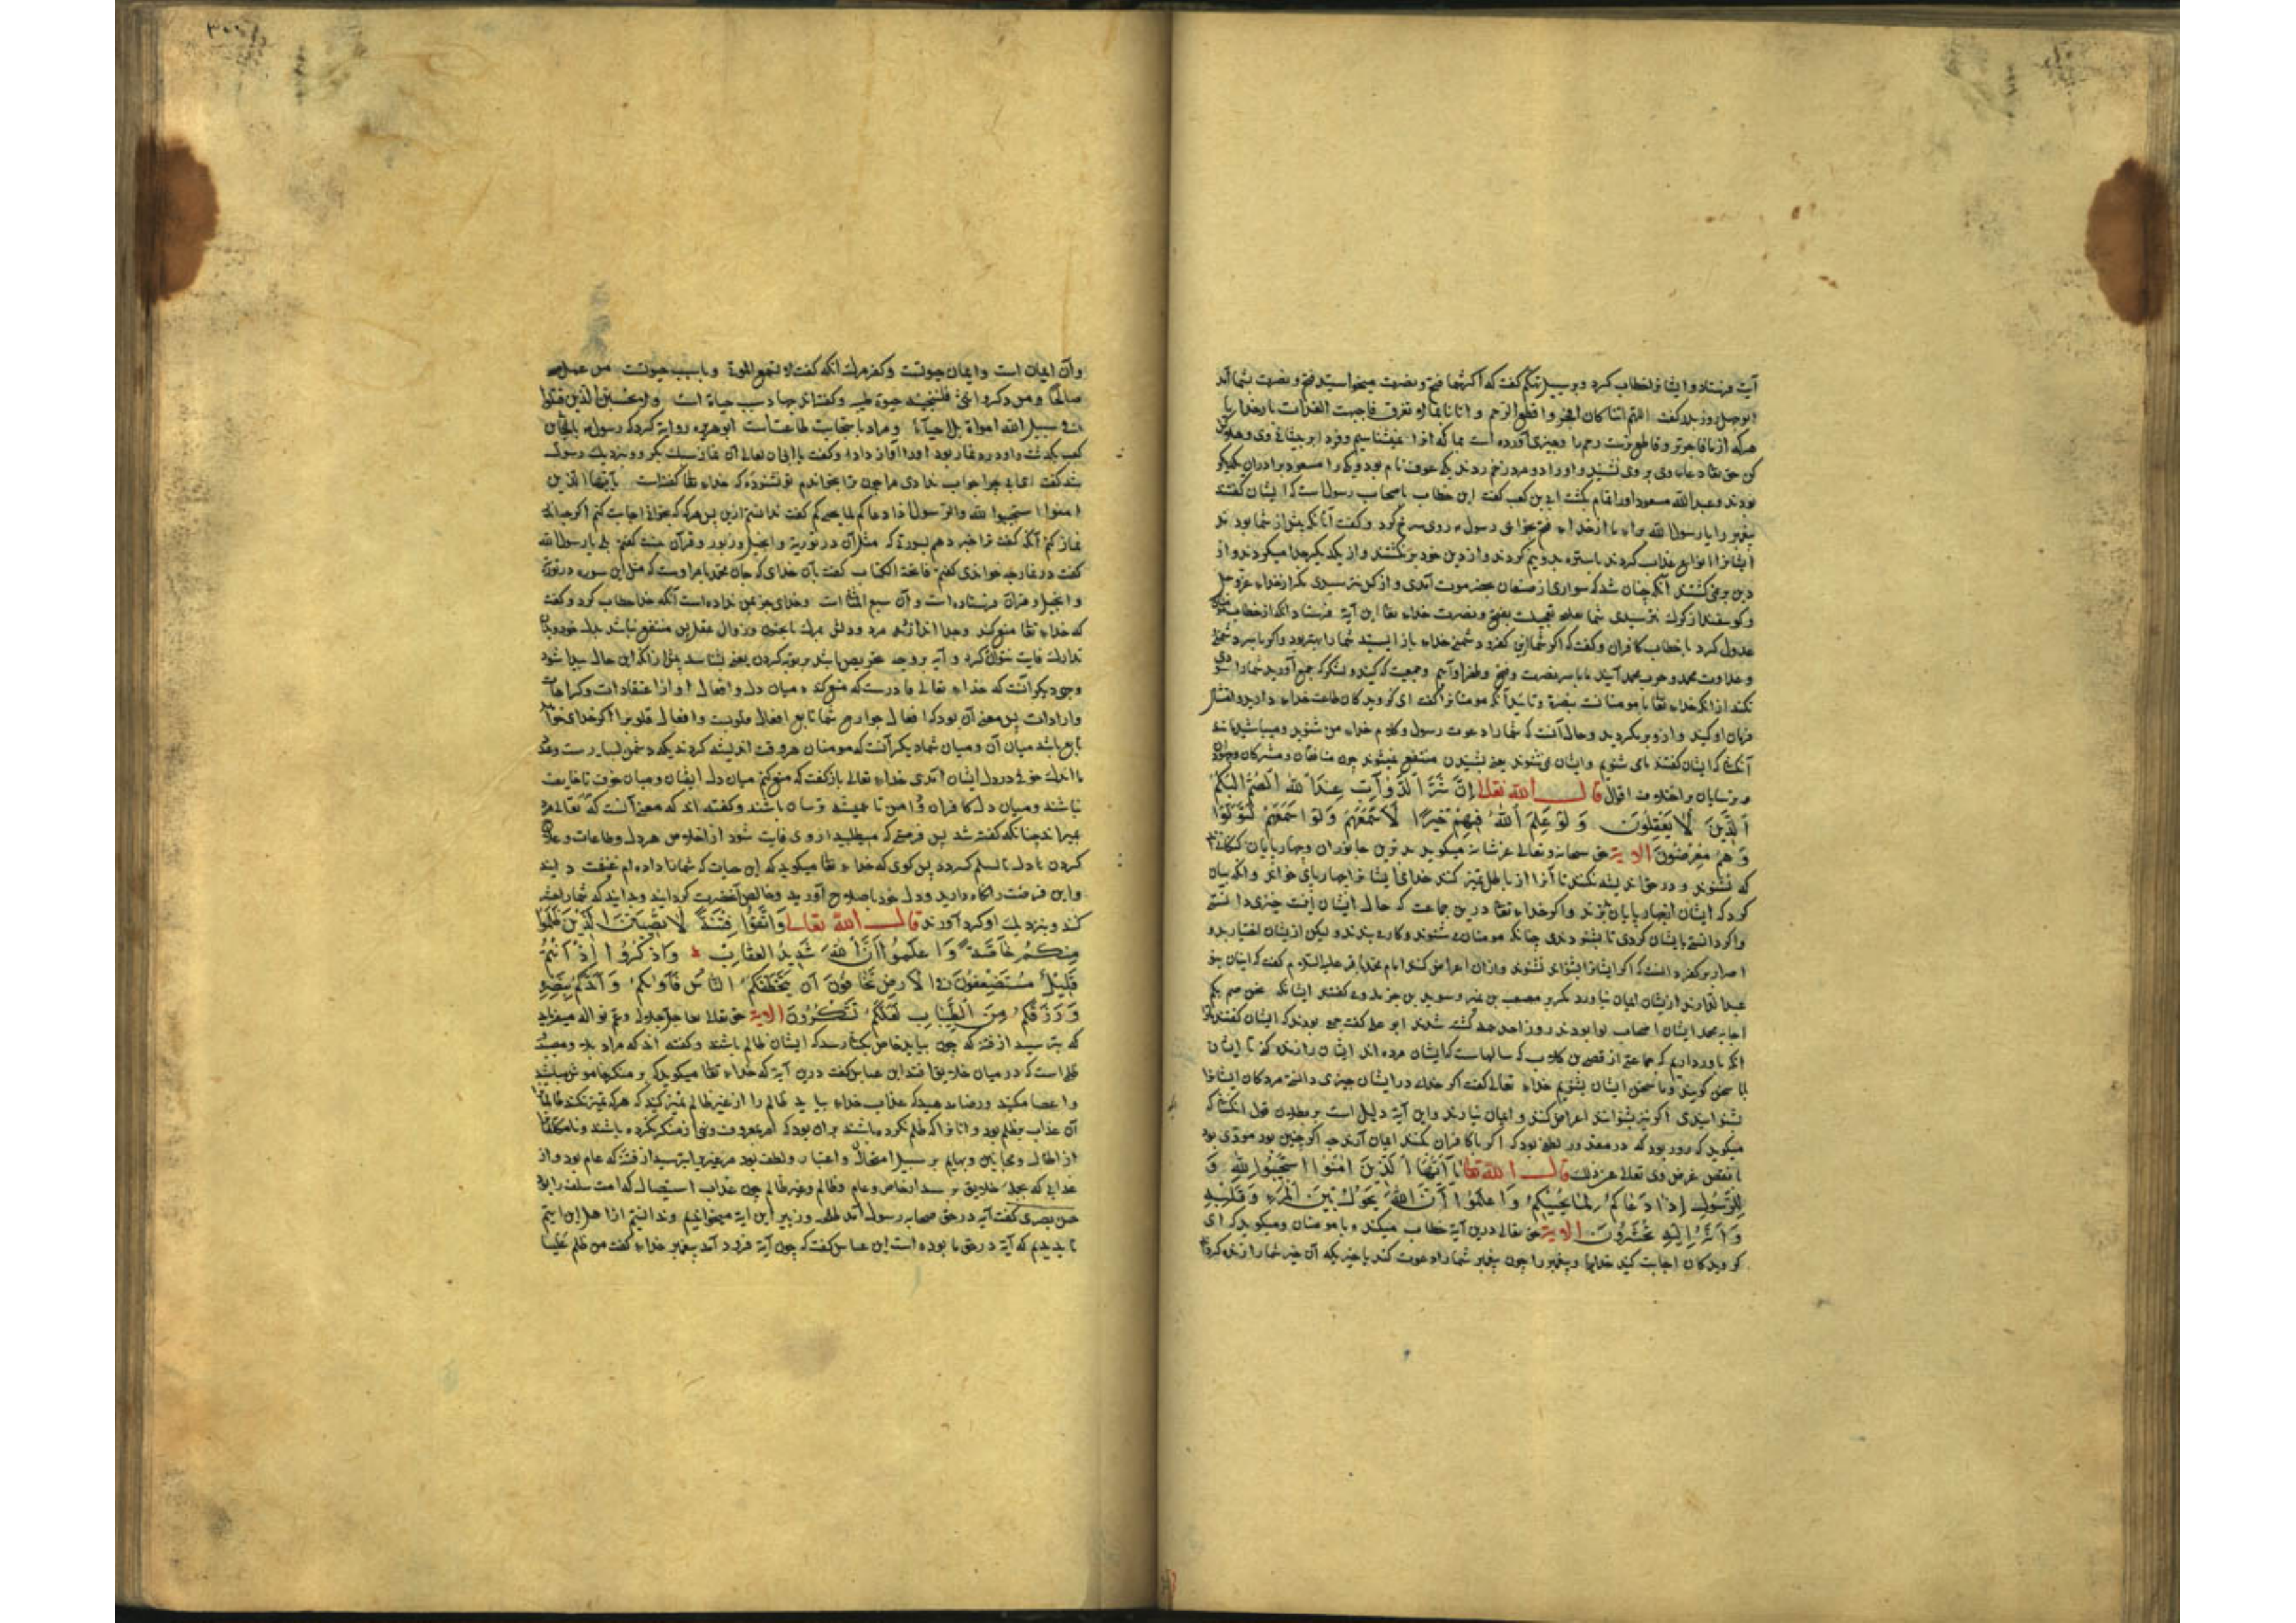 آیت فرستاد و ایشانرا خطاب کرد و بر سبیل تهکم گفت که اگر شما فتح و نصرت میخواستید فتح و نصرت بشما آمد
ابوجهل روز بدر گفت اللهم اینا کان افجر و اقطع للرحم
هرکه از ما فاجرتر و قاطع ترست رحم را
کن حق تعالی دعاء وی بر وی نشنید و او را دو مرد زخم زدند یکی عوف نام بود و یکی را مسعود برادران یکدیگر
بودند و عبدالله مسعود او را تمام بکشت ابی بن کعب گفت این خطاب با صحاب رسولست که ایشان گفتند
پیغمبر را یا رسول الله ما را از خداء فتح بخواهی رسول روی سرخ کرد و گفت آنانکه پیش از شما بودند
ایشانرا انواع عذاب کردند باستره بدو نیم کردند و از دین خود برنگشتند و از یکدیگر جدا میکردند و از
دین بر نمی گشتند آنکه چنان شد که سواری از صنعان بحضرموت آمدی و از کس نترسیدی مگر از خداء عزوجل
و گوسفند از گرک نترسیدی شما تعجیلت بفتح و نصرت خداء تعالی این آیة فرستاد آنکه از خطاب
عدول کرد با خطاب کافران و گفت که اگر شما ازین کفر و دشمنی خداء باز ایستید شما را بهتر بود و اگر با سر دشمنی
و عداوت محمد و حرب محمد آیید ما با سر نصرت و فتح و ظفر او آییم و جمعیت که کنید و لشکر که جمع آورید شما را
نکند از آنکه خداء تعالی با مومنانست بنصرة و تایید آنکه مومنانرا گفت ای گرویدگان طاعت خداء دارید و انقیاد
فرمان او کنید و ازو بر مگردید و حال آنست که شما را دعوت رسول و کلام خداء من شنوید و میباشید مانند
آنکسها که ایشان گفتند مای شنویم و ایشان نمی شنوند یعنی بشنیدن منتفع نمیشوند چون منافقان و مشرکان
و ترسایان بر اختلاف اقوال قال الله تعالی إِنَّ شَرَّ الدَّوَآبِّ عِنْدَ الله الصُّمُّ الْبُكْمُ
الَّذِينَ لَا يَعْقِلُونَ وَلَوْ عَلِمَ اللهُ فِيهِمْ خَيْرًا لَأَسْمَعَهُمْ وَلَوْ أَسْمَعَهُمْ لَتَوَلَّوْا
وَهُمْ مُعْرِضُونَ الایة حق سبحانه و تعالی عز شانه میگوید بدترین جانوران و چهارپایان
که نشنوند و در حق اندیشه نکنند تا آنرا از باطل تمییز کنند خدای ایشانرا چهارپای خواند و آنکه بیان
کرد که ایشان از چهارپایان بترند و اگر خداء تعالی درین جماعت که حال ایشان اینست چیزی دانستی
و اگر دانستی بایشان کردی تا بشنودندی چنانکه مومنان شنوند و کار بندند و لیکن از یشان اختیار بد و
اصرار بر کفر دانست که اگر ایشانرا بشنوای نشنوند و از ان اعراض کنند امام محمد باقر علیه السلام گفت که اینان بنو
عبدالدارند از یشان ایمان نیاورد مگر مصعب بن عمیر و سوید بن حرمله و گفتند ایشانکه نحن صم بکم
اجابه محمد ایشان اصحاب لوا بودند روز احد همه کشته شدند ابو علی گفت جمعی بودند که ایشان گفتند
آنکه باور داریم که جماعتی از قصی بن کلاب که سالهاست که ایشان مرده اند ایشان را زنده کن تا ایشان
با ما سخن گویند و ما سخن ایشان بشنویم خداء تعالی گفت اگر خداء در ایشان چیزی دانستی مردگان ایشانرا
بشنوانیدی اگر نیز بشنوانند اعراض کنند و ایمان نیارند و این آیة دلیل است بر بطلان قول آنکس که
میگوید که روا بود که در مقدور لطفی بود که اگر با کافران بکنند ایمان آرند چه اگر چنین بود مودی بود
با نقض غرض وی تعالی عز ذلک قال الله تعالی يَا أَيُّهَا الَّذِينَ آمَنُوا اسْتَجِيبُوا لِلَّهِ وَ
لِلرَّسُولِ إِذَا دَعَاكُمْ لِمَا يُحْيِيكُمْ وَاعْلَمُوا أَنَّ اللهَ يَحُولُ بَيْنَ الْمَرْءِ وَقَلْبِهِ
وَأَنَّهُ إِلَيْهِ تُحْشَرُونَ الایة حق تعالی درین آیة خطاب میکند و با مومنان و میگوید که ای
گرویدگان اجابت کنید خدایرا و پیغمبر را چون پیغمبر شما را دعوت کند با چیزیکه آن چیز شما را زنده کرد
وآن ایمان است و ایمان حیوتست و کفر مرک آنکه گفت انک لا تسمع الموتی و یا بسبب حیوتست من عمل
صالحا من ذکر او انثی فلنحیینه حیوة طیبة و گفته اند جهاد سبب حیاة است ولا تحسبن الذین قتلوا
فی سبیل الله امواتا بل احیاء و مراد باستجابت طاعتست ابو هریره روایة کرد که رسول بابی بن
کعب بگذشت و او در نماز بود او را آواز داد و گفت یا ابی آن نماز سبک بکرد و بنزدیک رسول
شد گفت ای ابی چرا جواب ندادی مرا چون ترا بخواندم تو نشنوده که خداء تعالی گفتست یا ایها الذین
امنوا استجیبوا لله و للرسول اذا دعاکم لما یحییکم گفت ندانستم ازین پس هرکه که بخوانی اجابت کنم اگر چه
نماز کنم آنکه گفت ترا خبر دهم بسورة که مثل آن در توریة و انجیل و زبور و قرآن نیست گفتم بلی یا رسول الله
گفت در نماز چه خوانی گفتم فاتحة الکتاب گفت بآن خدای که جان محمد بامر اوست که مثل این سوره در توریة
و انجیل و قران نفرستاده است و آن سبع المثانی است و خدای جز بمن نداده است آنکه خطاب کرد و گفت
که خداء تعالی منع کند
تدارک فایت نتوان کرد و آیه بر وجه تحریص باشد بر توبه کردن یعنی بشتابید پیش از آنکه این حال پیدا شود
وجهی دیگر آنست که خداء تعالی قادرست که منع کند میان دل و افعال او از اعتقادات و کراهات
و ارادات پس معنی آن بود که افعال جوارح شما تابع افعال قلوبست و افعال قلوب را اگر خدای خواهد
مانع باشد میان آن و میان شما دیگر آنست که مومنان هر وقت اندیشه کردند که دشمن بسیارست
ما اندک خوفی در دل ایشان آمدی خداء تعالی باز گفت که منع کنم میان دل ایشان و میان خوف تا خایف
نباشند و میان دل کافران و امن تا همیشه ترسان باشند و گفته اند که معنی آنست که تعالی مرد
بمیراند چنانکه گفته شد پس فرصتی که میطلبید از وی فایت شود از اخلاص هر دل و طاعات
کردن تا دل با سلم گردد پس گوی که خداء تعالی میگوید که این حیات که شما را داده ام غنیمت دانید
و این فرصت را نگاه دارید و دل خود باصلاح آورید و خالص آنحضرت گردانید و بدانید که شما را حشر
کنند و بنزدیک او گرد آورند قال الله تعالی وَاتَّقُوا فِتْنَةً لَا تُصِيبَنَّ الَّذِينَ ظَلَمُوا
مِنْكُمْ خَاصَّةً وَاعْلَمُوا أَنَّ اللهَ شَدِيدُ الْعِقَابِ وَاذْكُرُوا إِذْ أَنْتُمْ
قَلِيلٌ مُسْتَضْعَفُونَ فِي الْأَرْضِ تَخَافُونَ أَنْ يَتَخَطَّفَكُمُ النَّاسُ فَآوَاكُمْ وَأَيَّدَكُمْ بِنَصْرِهِ
وَرَزَقَكُمْ مِنَ الطَّيِّبَاتِ لَعَلَّكُمْ تَشْكُرُونَ الایة حق تعالی جل جلاله و عم نواله میفرماید
که بترسید از فتنه که چون بیاید خاص بکسی نرسد که ایشان ظالم باشند و گفته اند که مراد
ظلم است که در میان خلایق افتد ابن عباس گفت درین آیة که خداء تعالی میگوید که بر منکر خاموش مباشید
و اعضا مکنید و رضا مدهید که عذاب خداء بیاید ظالم را از غیر ظالم تمییز نکند
آن عذاب بظلم بود و آنانرا که ظلم نکرده باشند بران بود که امر بمعروف و نهی از منکر نکرده باشند
از اطفال و مجانین و بهایم بر سبیل امتحان و اعتبار و لطف بود بترسید از فتنه که عام بود و از
عذابی که بجمله خلایق برسد از خاص و عام و ظالم و غیر ظالم چون عذاب استیصال که امت سلف را بود
حسن بصری گفت آیه در حق صحابه رسول آمد طلحه و زبیر این آیه میخواندیم و ندانستیم
تا بدیدیم که آیة در حق ما بوده است ابن عباس گفت که چون آیة فرود آمد پیغمبر خداء گفت من ظلم علیا